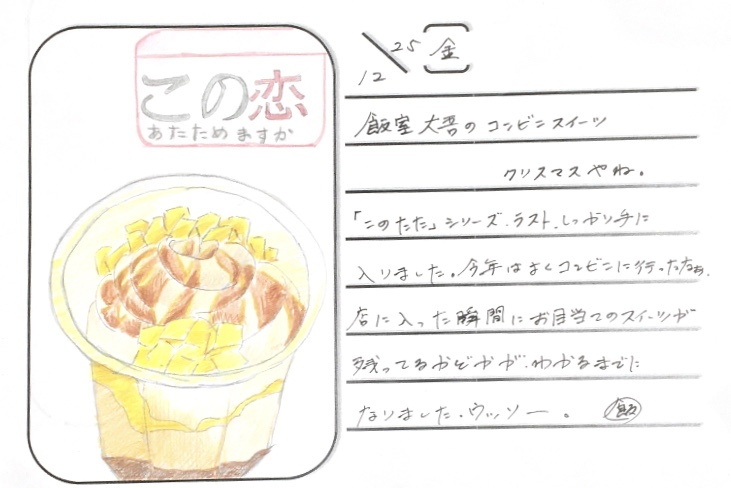 この恋
あたためますか
12/25(金)
飯室大吾のコンビニスイーツ
クリスマスやね。
「このたた」シリーズ、ラスト、しっかり手に
入りました。今年はよくコンビニに行ったなぁ。
店に入った瞬間にお目当てのスイーツが
残ってるかどうかが、わかるまでに
なりました、ウッソー。 飯